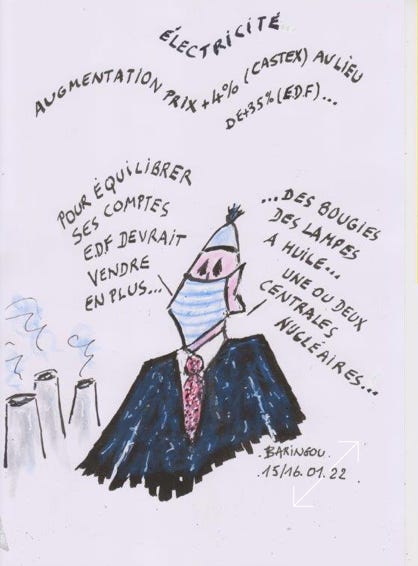 ÉLECTRICITÉ
AUGMENTATION PRIX +4% (CASTEX) AU LIEU
DE +35% (E.D.F)...
POUR ÉQUILIBRER
SES COMPTES
E.D.F DEVRAIT
VENDRE
EN PLUS...
...DES BOUGIES
DES LAMPES
A HUILE...
UNE OU DEUX
CENTRALES
NUCLÉAIRES...
BARINGOU.
15/16.01.22